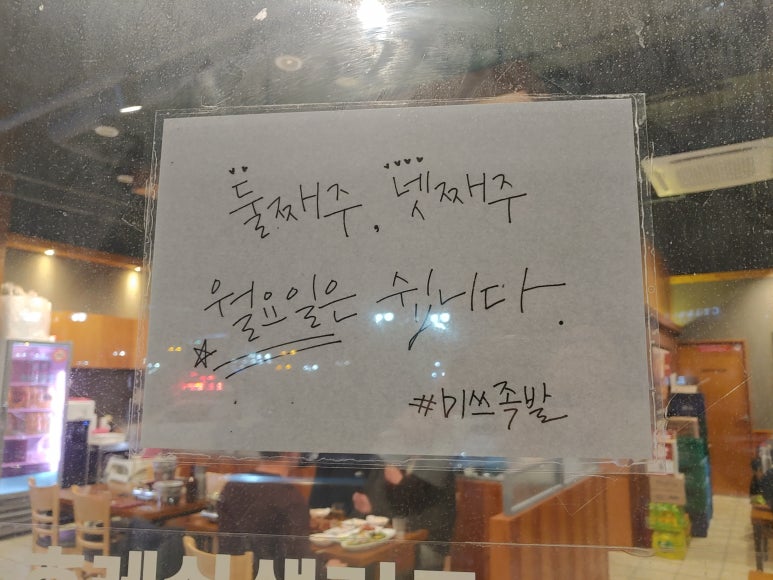 둘째주, 넷째주
월요일은 쉽니다.
#미쓰족발